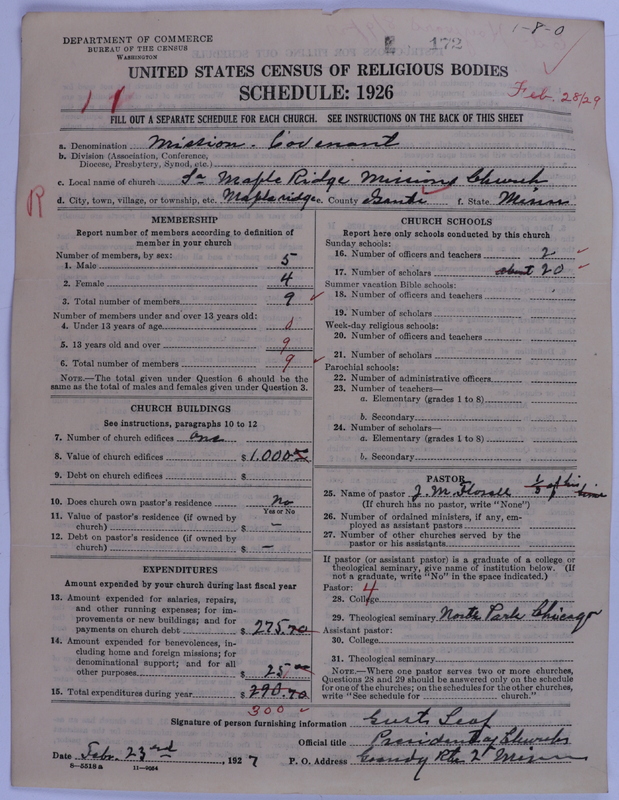 1-8-0
DEPARTMENT OF COMMERCE
BUREAU OF THE CENSUS
WASHINGTON
172
UNITED STATES CENSUS OF RELIGIOUS BODIES
SCHEDULE: 1926
Feb. 28/29
11
FILL OUT A SEPARATE SCHEDULE FOR EACH CHURCH. SEE INSTRUCTIONS ON THE BACK OF THIS SHEET
a. Denomination Mission Covenant
b. Division (Association, Conference,
Diocese, Presbytery, Synod, etc.)
c. Local name of church So Maple Ridge Mission Church
R
d. City, town, village, or township, etc. Mapleridge e. County Isanti f. State Minn
MEMBERSHIP
Report number of members according to definition of
member in your church
Number of members, by sex:
1. Male 5
2. Female 4
3. Total number of members 9
Number of members under and over 13 years old:
4. Under 13 years of age 0
5. 13 years old and over 9
6. Total number of members 9
NOTE.—The total given under Question 6 should be the
same as the total of males and females given under Question 3.
CHURCH BUILDINGS
See instructions, paragraphs 10 to 12
7. Number of church edifices one
8. Value of church edifices $ 1.000
9. Debt on church edifices $
10. Does church own pastor's residence No
Yes or No
11. Value of pastor's residence (if owned by
church) $ —
12. Debt on pastor's residence (if owned by
church) $ —
EXPENDITURES
Amount expended by your church during last fiscal year
13. Amount expended for salaries, repairs,
and other running expenses; for im-
provements or new buildings; and for
payments on church debt $ 275.70
14. Amount expended for benevolences, in-
cluding home and foreign missions; for
denominational support; and for all
other purposes $ 25
15. Total expenditures during year $ 290.70
300
CHURCH SCHOOLS
Report here only schools conducted by this church
Sunday schools:
16. Number of officers and teachers 2
17. Number of scholars about 20
Summer vacation Bible schools:
18. Number of officers and teachers
19. Number of scholars
Week-day religious schools:
20. Number of officers and teachers
21. Number of scholars
Parochial schools:
22. Number of administrative officers
23. Number of teachers—
a. Elementary (grades 1 to 8)
b. Secondary
24. Number of scholars—
a. Elementary (grades 1 to 8)
b. Secondary
PASTOR
25. Name of pastor J. M. 1/5 of his time
(If church has no pastor, write "None")
26. Number of ordained ministers, if any, em-
ployed as assistant pastors
27. Number of other churches served by the
pastor or his assistants
If pastor (or assistant pastor) is a graduate of a college or
theological seminary, give name of institution below. (If
not a graduate, write "No" in the space indicated.)
Pastor: 4
28. College
29. Theological seminary North Park Chicago
Assistant pastor:
30. College
31. Theological seminary
NOTE.—Where one pastor serves two or more churches,
Questions 28 and 29 should be answered only on the schedule
for one of the churches; on the schedules for the other churches,
write "See schedule for church."
Signature of person furnishing information Gust Leaf
Official title President of Church
Date Febr. 23rd, 1927 P. O. Address Grandy Rte 2 Minn
8—5518a 11—9054